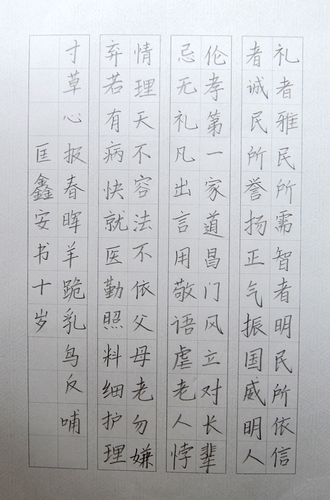 礼者雅民所需智者明民所依信
者诚民所誉扬正气振国威明人
伦孝第一家道昌门风立对长辈
忌无礼凡出言用敬语虐老人悖
情理天不容法不依父母老勿嫌
弃若有病快就医勤照料细护理
寸草心报春晖羊跪乳乌反哺
匡鑫安书十岁